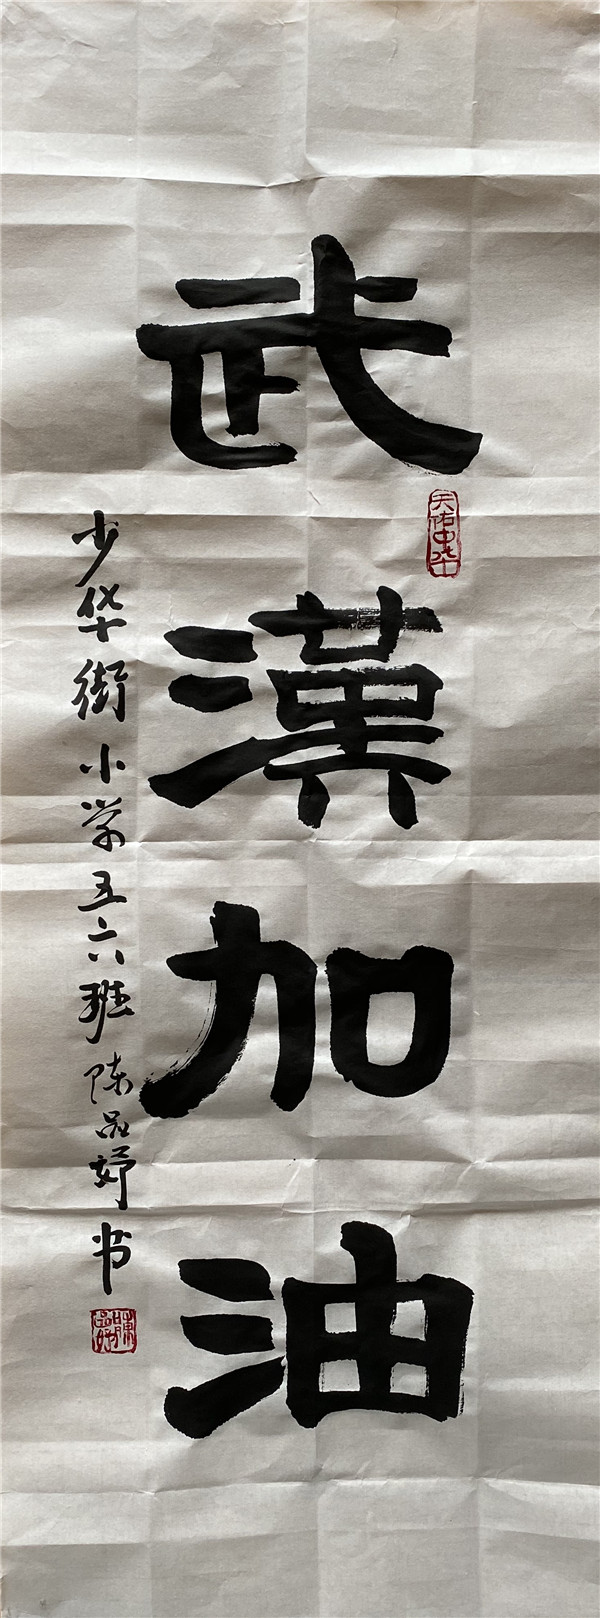 武漢加油
天佑中华
少华街小学五六班陈品妤书